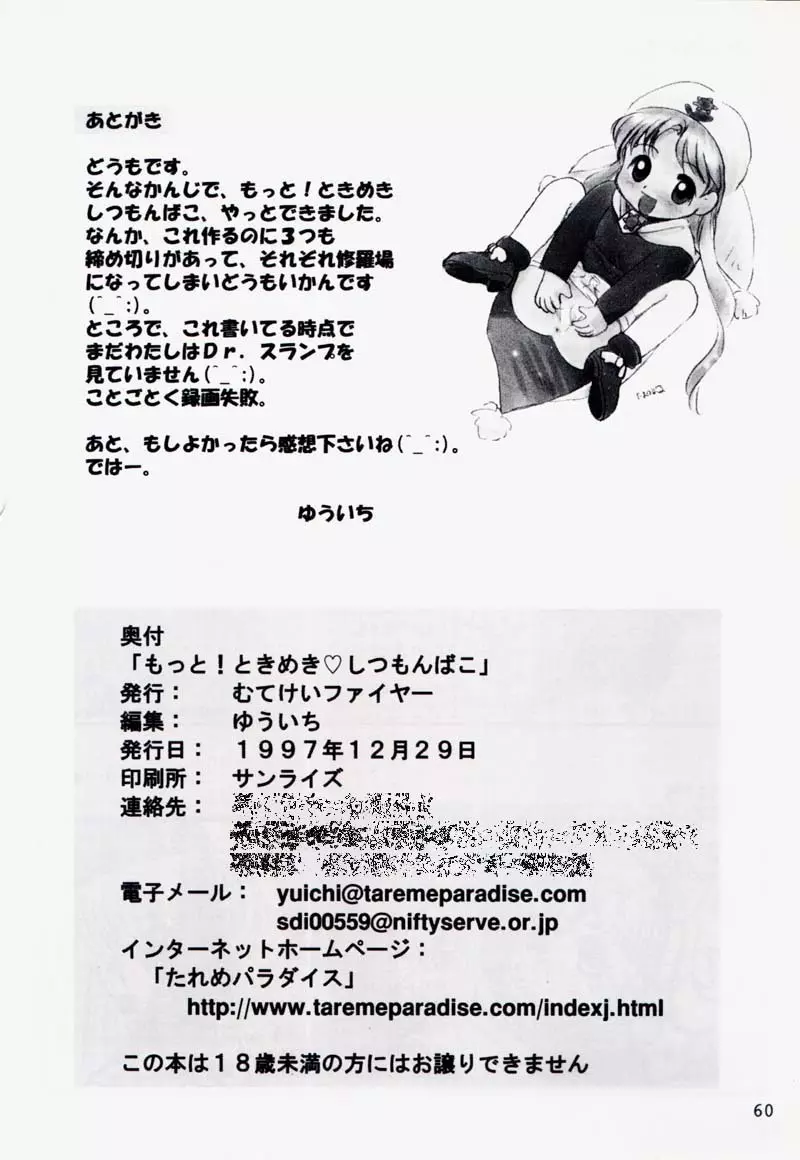 あとがき
どうもです。
そんなかんじで、もっと！ときめき
しつもんばこ、やっとできました。
なんか、これ作るのに３つも
締め切りがあって、それぞれ修羅場
になってしまいどうもいかんです
(^_^;)。
ところで、これ書いてる時点で
まだわたしはＤｒ．スランプを
見ていません(^_^;)。
ことごとく録画失敗。
あと、もしよかったら感想下さいね(^_^;)。
ではー。
ゆういち
奥付
「もっと！ときめき♡しつもんばこ」
発行： むてけいファイヤー
編集： ゆういち
発行日： １９９７年１２月２９日
印刷所： サンライズ
連絡先：
電子メール： yuichi@taremeparadise.com
sdi00559@niftyserve.or.jp
インターネットホームページ：
「たれめパラダイス」
http://www.taremeparadise.com/indexj.html
この本は１８歳未満の方にはお譲りできません
60